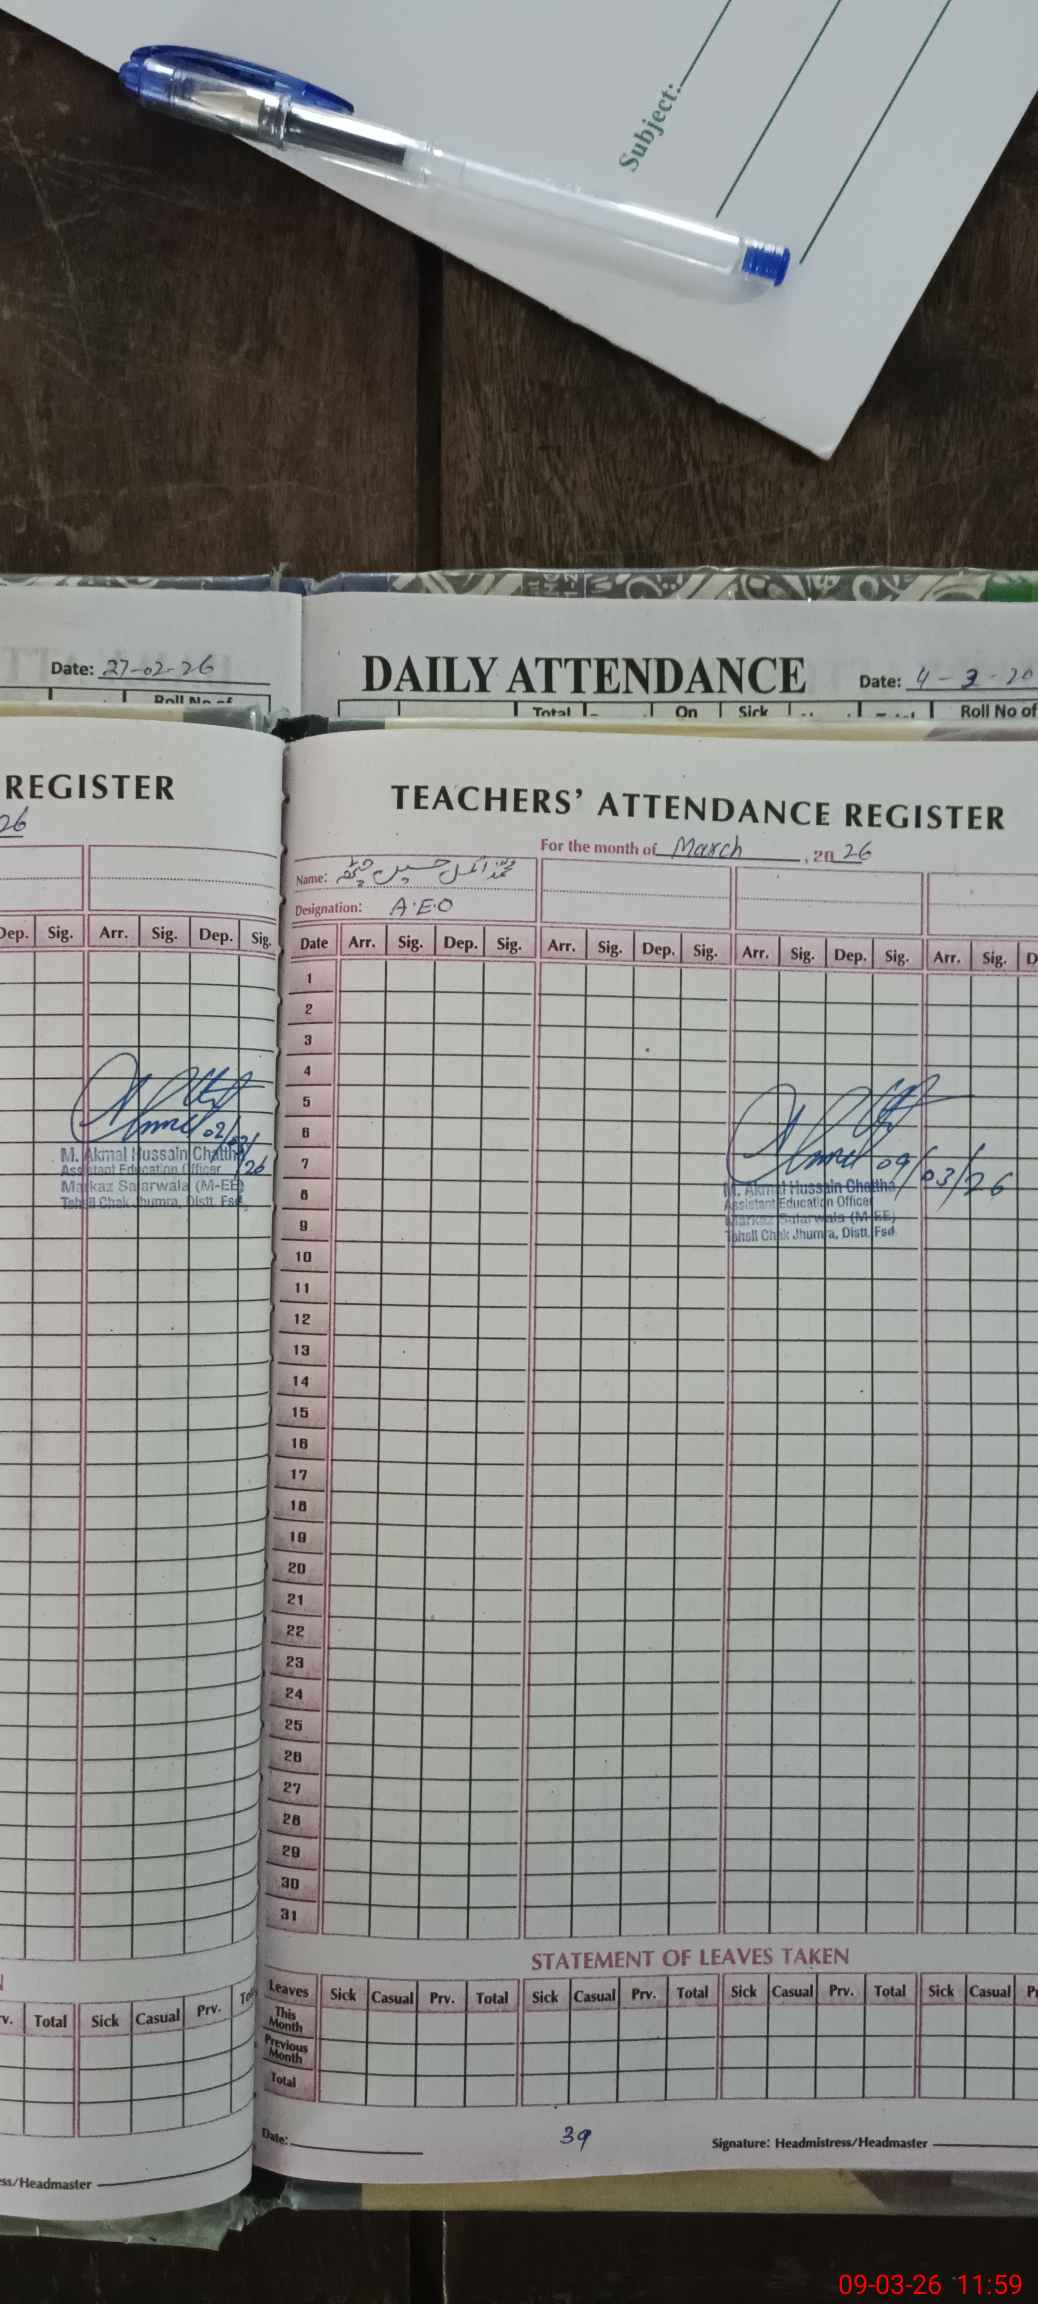 Subject:
Date: 27-02-26
Roll No of
DAILY ATTENDANCE
Date: 4-3-20
Total On Sick Roll No of
REGISTER
26
Dep. Sig. Arr. Sig. Dep. Sig.
02/03/26
M. Akmal Hussain Chattha
Assistant Education Officer
Markaz Salarwala (M-EE)
Tehsil Chak Jhumra, Distt. Fsd.
Total Sick Casual Prv.
ss/Headmaster
TEACHERS' ATTENDANCE REGISTER
For the month of March, 2026
Name: محمد اکمل حسین چٹھہ
Designation: A.E.O
Date Arr. Sig. Dep. Sig. Arr. Sig. Dep. Sig. Arr. Sig. Dep. Sig. Arr. Sig. D
1
2
3
4
5
6
7
8
9
10
11
12
13
14
15
16
17
18
19
20
21
22
23
24
25
26
27
28
29
30
31
09/03/26
M. Akmal Hussain Chattha
Assistant Education Officer
Markaz Salarwala (M-EE)
Tehsil Chak Jhumra, Distt. Fsd
STATEMENT OF LEAVES TAKEN
Leaves Sick Casual Prv. Total Sick Casual Prv. Total Sick Casual Prv. Total Sick Casual Pr
This Month
Previous Month
Total
Date:
39
Signature: Headmistress/Headmaster
09-03-26 11:59